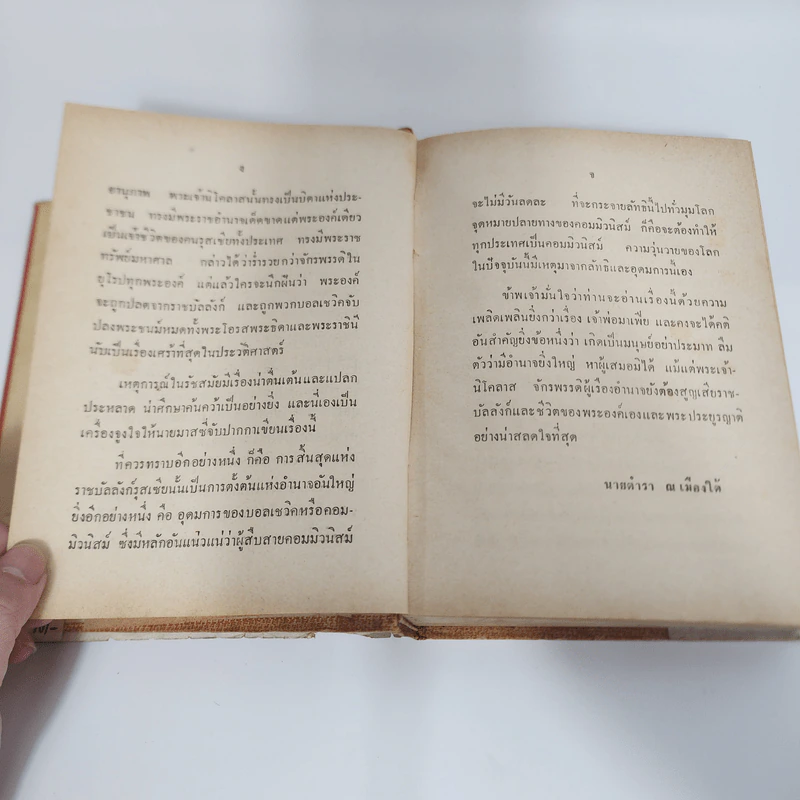 ๕
อรนุภาพ พระเจ้านิโคลาสนั้นทรงเป็นบิดาแห่งประ-
ชาชน ทรงมีพระราชอำนาจเด็ดขาดแต่พระองค์เดียว
เป็นเจ้าชีวิตของคนรุสเซียทั้งประเทศ ทรงมีพระราช
ทรัพย์มหาศาล กล่าวได้ว่าร่ำรวยกว่าจักรพรรดิใน
ยุโรปทุกพระองค์ แต่แล้วใครจะนึกฝันว่า พระองค์
จะถูกปลดจากราชบัลลังก์ และถูกพวกบอลเชวิคจับ
ปลงพระชนม์หมดทั้งพระโอรสพระธิดาและพระราชินี
นับเป็นเรื่องเศร้าที่สุดในประวัติศาสตร์
เหตุการณ์ในรัชสมัยมีเรื่องน่าตื่นเต้นและแปลก
ประหลาด น่าศึกษาค้นคว้าเป็นอย่างยิ่ง และนี่เองเป็น
เครื่องจูงใจให้นายมาสซี่จับปากกาเขียนเรื่องนี้
ที่ควรทราบอีกอย่างหนึ่ง ก็คือ การสิ้นสุดแห่ง
ราชบัลลังก์รุสเซียนั้นเป็นการตั้งต้นแห่งอำนาจอันใหญ่
ยิ่งอีกอย่างหนึ่ง คือ อุดมการของบอลเชวิคหรือคอม-
มิวนิสม์ ซึ่งมีหลักอันแน่วแน่ว่าผู้สืบสายคอมมิวนิสม์
จะไม่มีวันลดละ ที่จะกระจายลัทธินี้ไปทั่วมุมโลก
จุดหมายปลายทางของคอมมิวนิสม์ ก็คือจะต้องทำให้
ทุกประเทศเป็นคอมมิวนิสม์ ความวุ่นวายของโลก
ในปัจจุบันนี้มีเหตุมาจากลัทธิและอุดมการนี้เอง
ข้าพเจ้ามั่นใจว่าท่านจะอ่านเรื่องนี้ด้วยความ
เพลิดเพลินยิ่งกว่าเรื่อง เจ้าพ่อมาเฟีย และคงจะได้คติ
อันสำคัญยิ่งข้อหนึ่งว่า เกิดเป็นมนุษย์อย่าประมาท ลืม
ตัวว่ามีอำนาจยิ่งใหญ่ หาผู้เสมอมิได้ แม้แต่พระเจ้า-
นิโคลาส จักรพรรดิผู้เรืองอำนาจยังต้องสูญเสียราช-
บัลลังก์และชีวิตของพระองค์เองและพระประยูรญาติ
อย่างน่าสลดใจที่สุด
นายตำรา ณ เมืองใต้